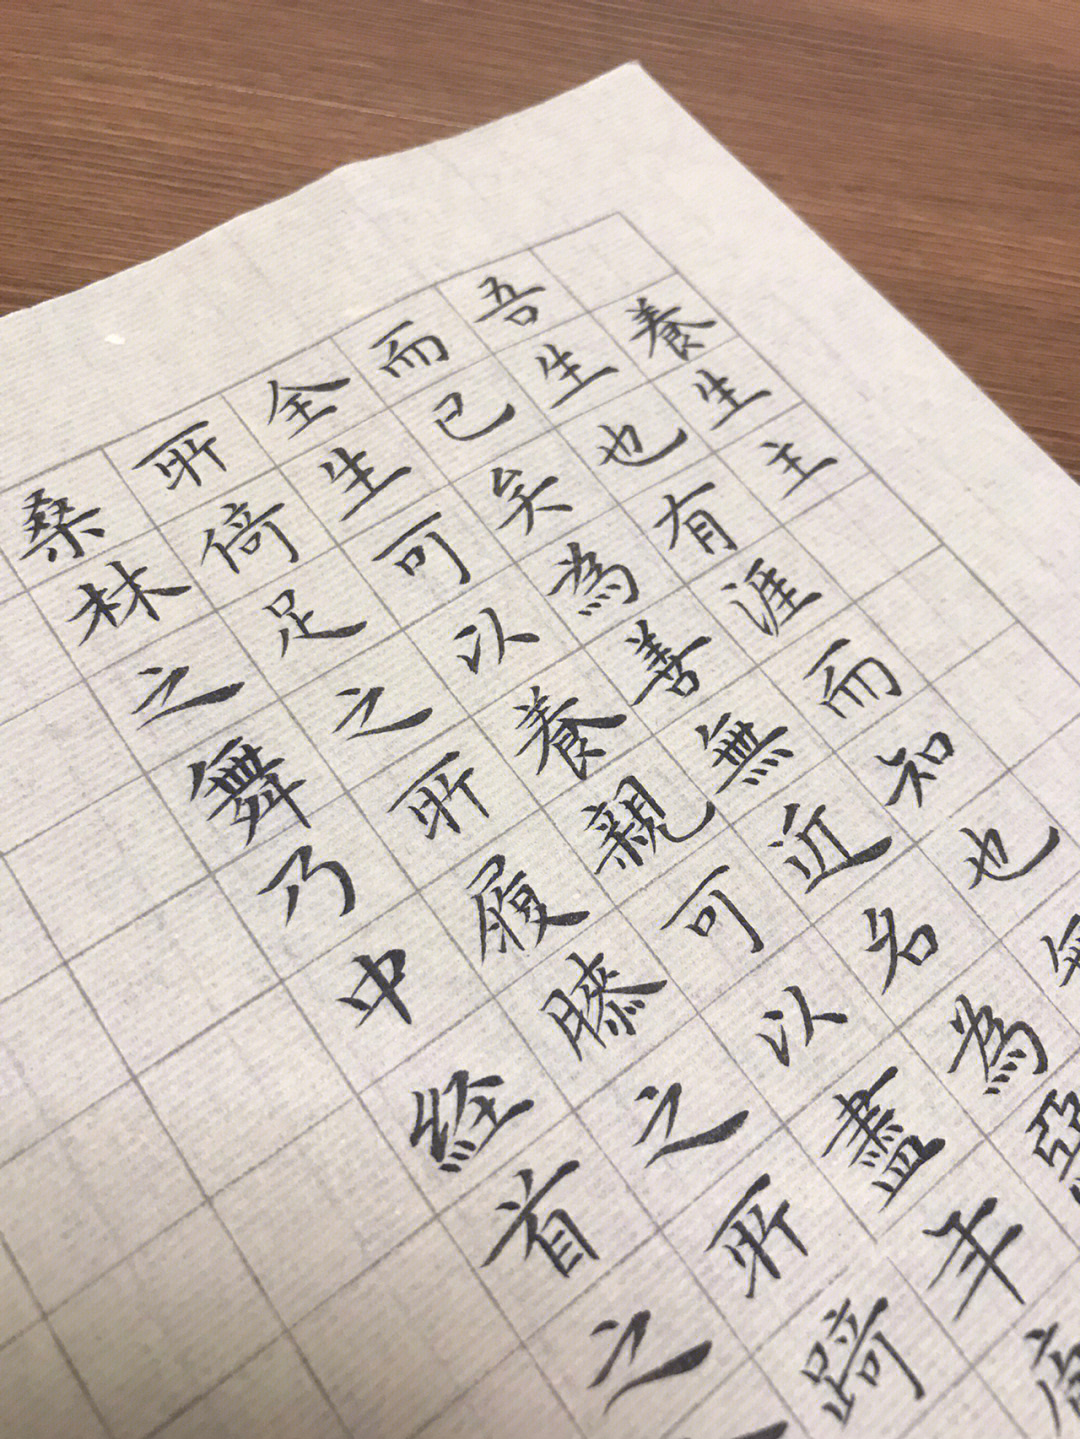 養生主
吾生也有涯而知也無
而已矣為善無近名為惡
全生可以養親可以盡年庖
所倚足之所履膝之所踦
桑林之舞乃中経首之